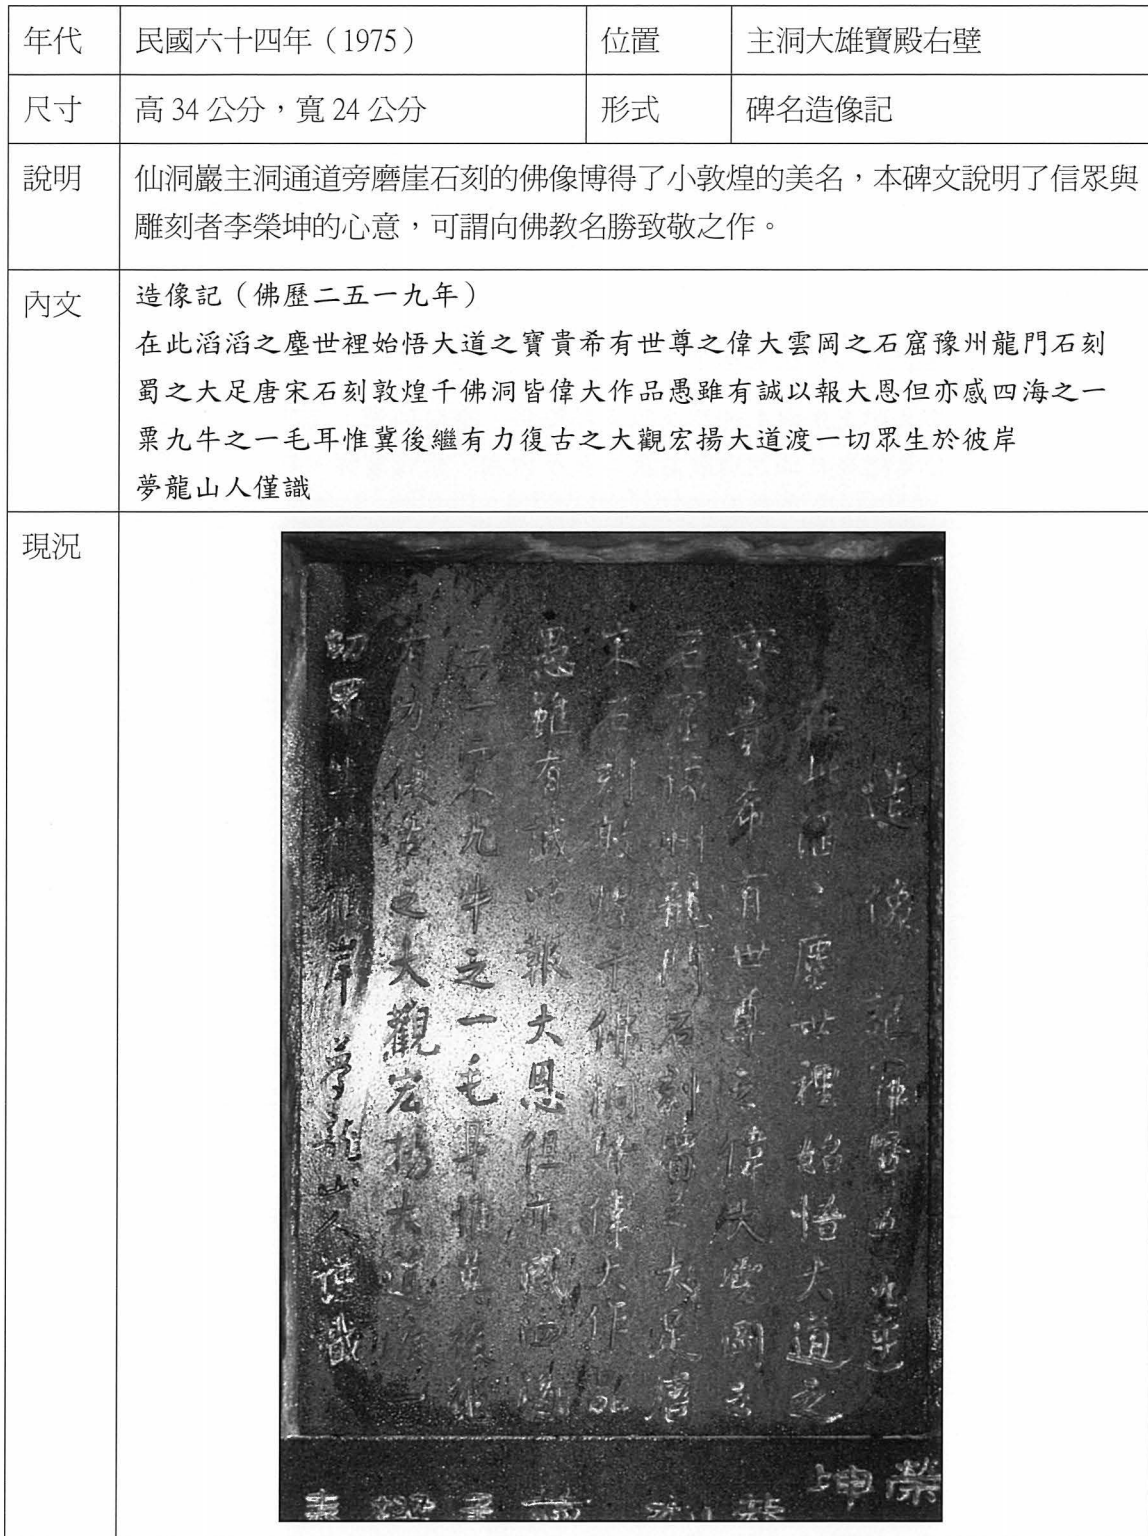 年代 民國六十四年（1975） 位置 主洞大雄寶殿右壁
尺寸 高 34 公分，寬 24 公分 形式 碑名造像記
說明 仙洞巖主洞通道旁磨崖石刻的佛像博得了小敦煌的美名，本碑文說明了信眾與
雕刻者李榮坤的心意，可謂向佛教名勝致敬之作。
內文 造像記（佛歷二五一九年）
在此滔滔之塵世裡始悟大道之寶貴希有世尊之偉大雲岡之石窟豫州龍門石刻
蜀之大足唐宋石刻敦煌千佛洞皆偉大作品愚雖有誠以報大恩但亦感四海之一
粟九牛之一毛耳惟冀後繼有力復古之大觀宏揚大道渡一切眾生於彼岸
夢龍山人僅識
現況
造像記
在此滔、塵世裡始悟大道之
寶貴希有世尊之偉大雲岡之
石窟豫州龍門石刻蜀之大足唐
宋石刻敦煌千佛洞皆偉大作品
愚雖有誠以報大恩但亦感四海
之一粟九牛之一毛耳惟冀後繼
有力復古之大觀宏揚大道渡一
切眾生於彼岸 夢龍山人謹識
榮坤